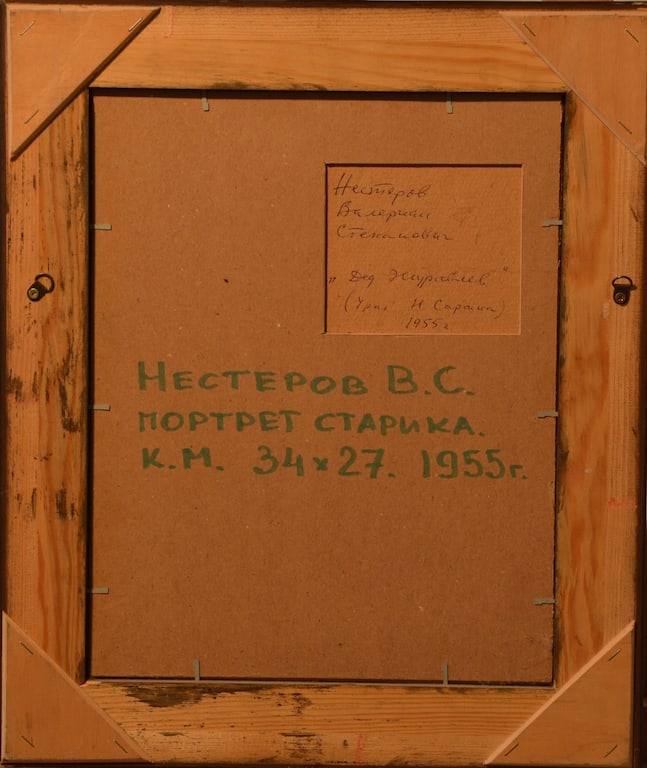 Нестеров
Валериан
Степанович
"Дед Журавлев"
(Урал Н Сарана)
1955 г
НЕСТЕРОВ В.С.
ПОРТРЕТ СТАРИКА.
К.М. 34×27. 1955 г.